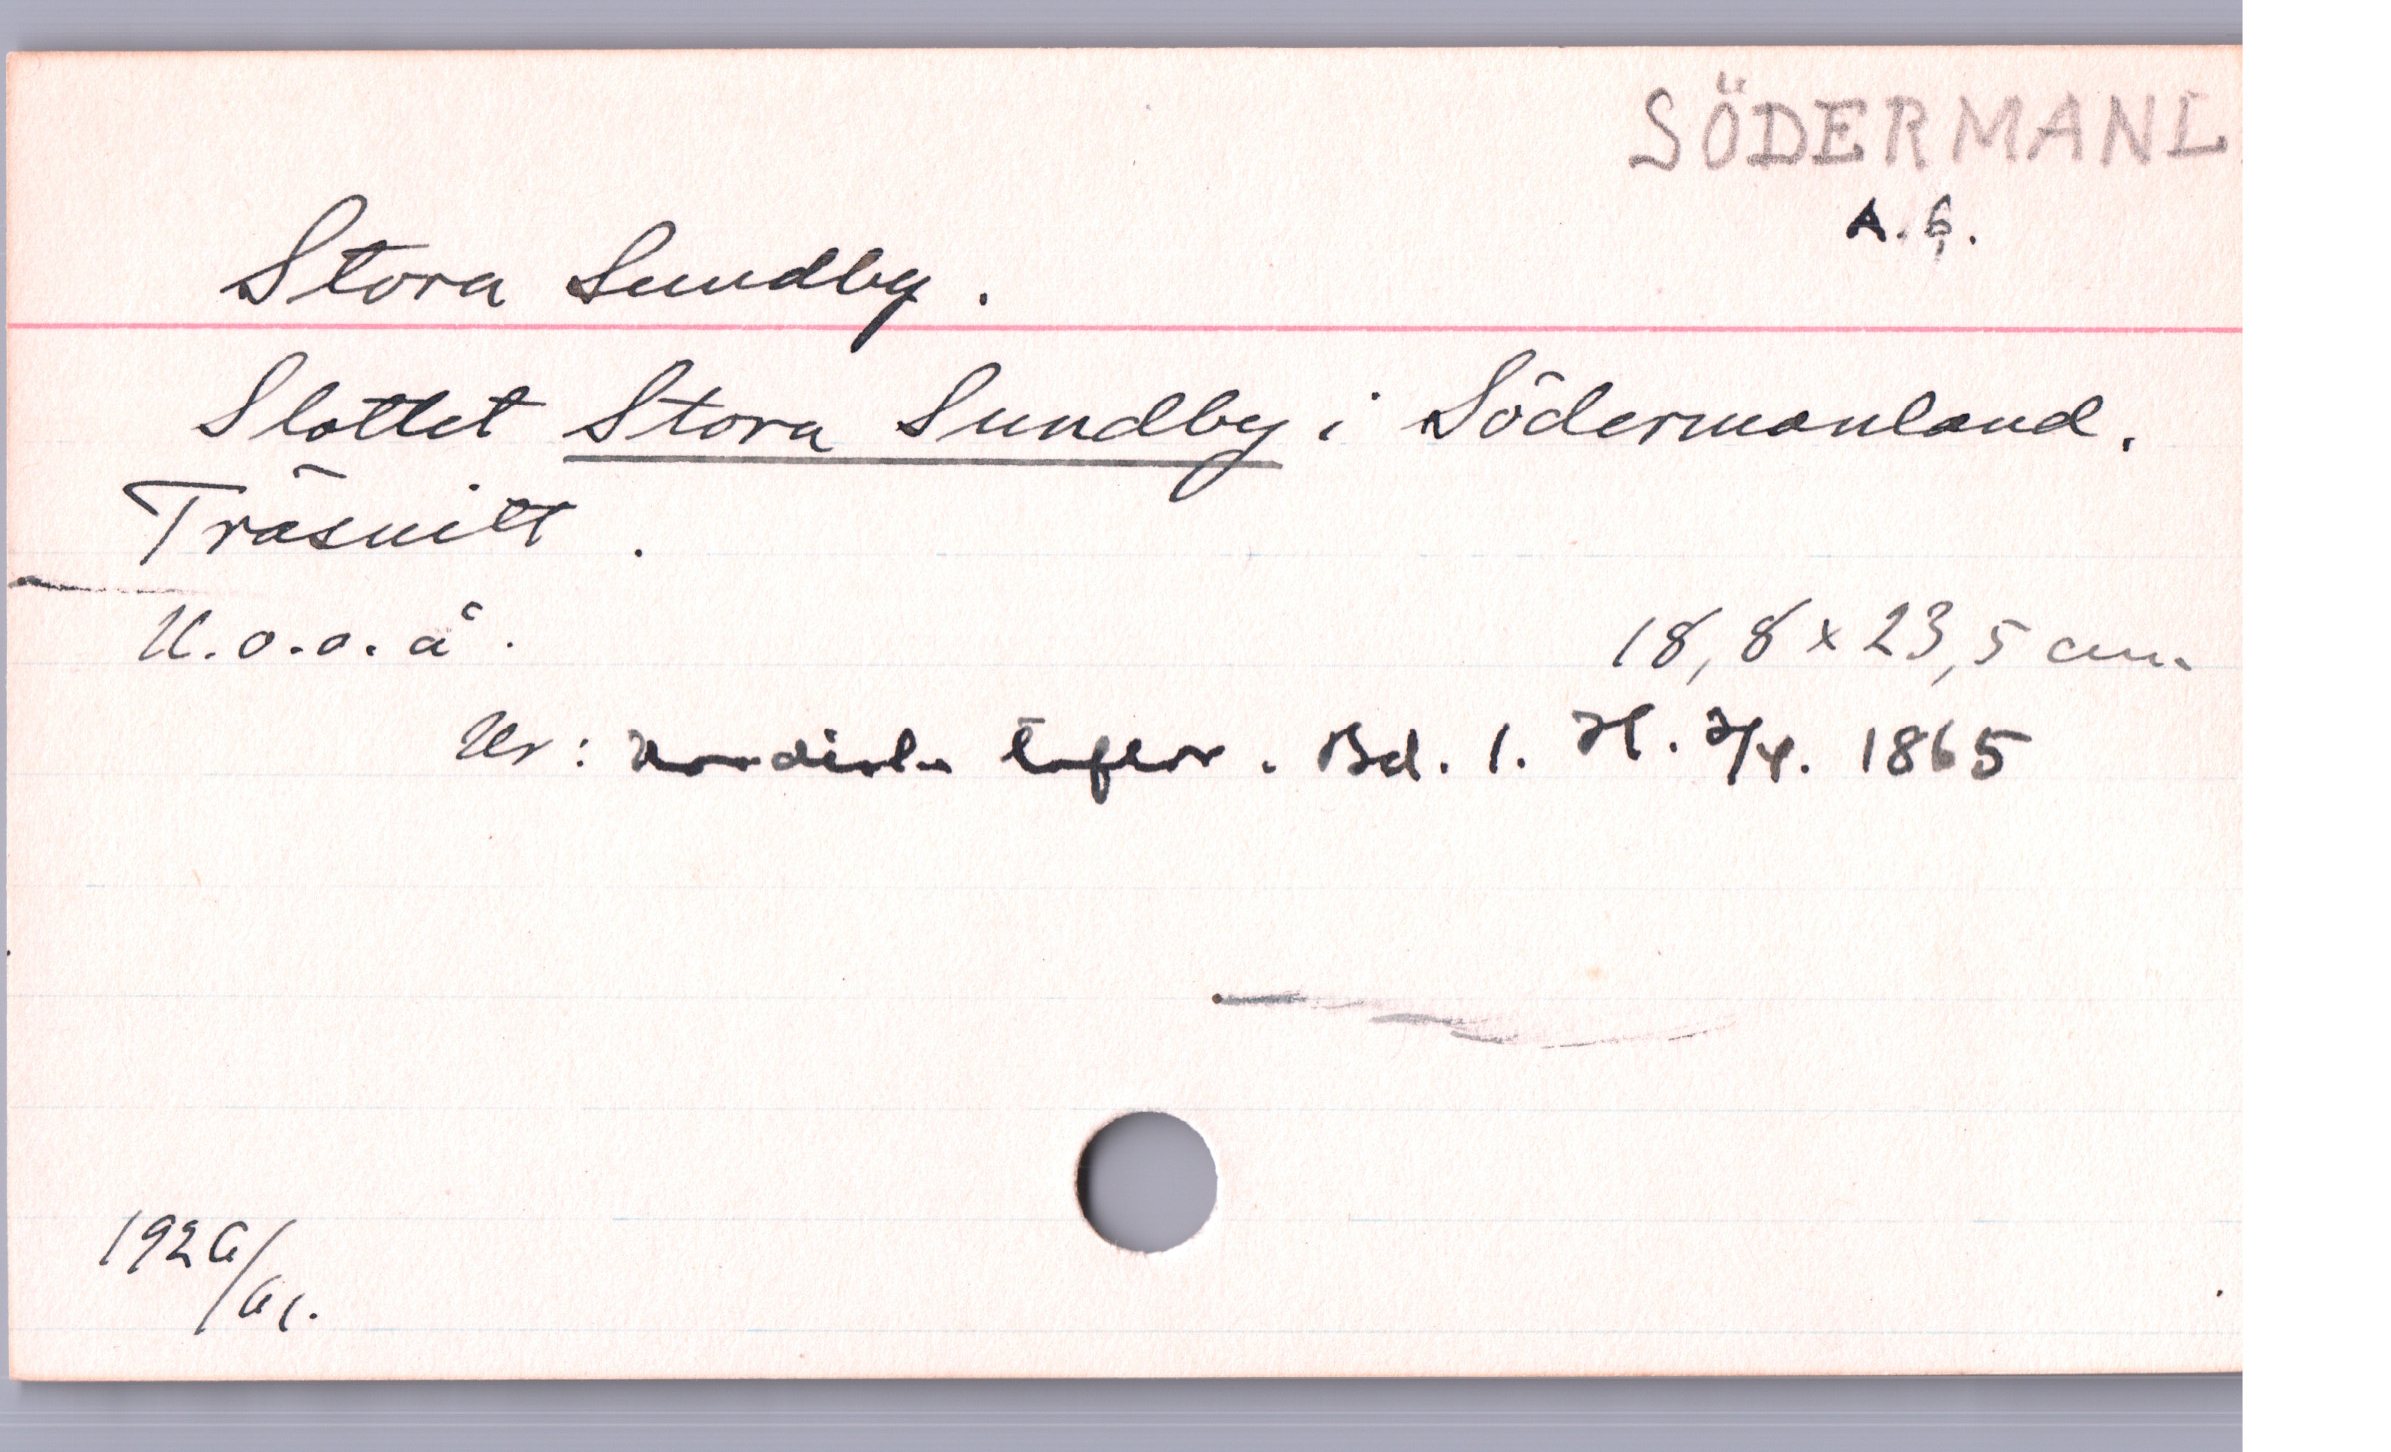 SÖDERMANL
A. 6.
Stora Sundby.
Slottet Stora Sundby i Södermanland.
Träsnitt.
U.o.o.å.
18,8 x 23,5 cm.
Ur: Nordiska taflor. Bd. 1. H. 3/4. 1865
1926/61.